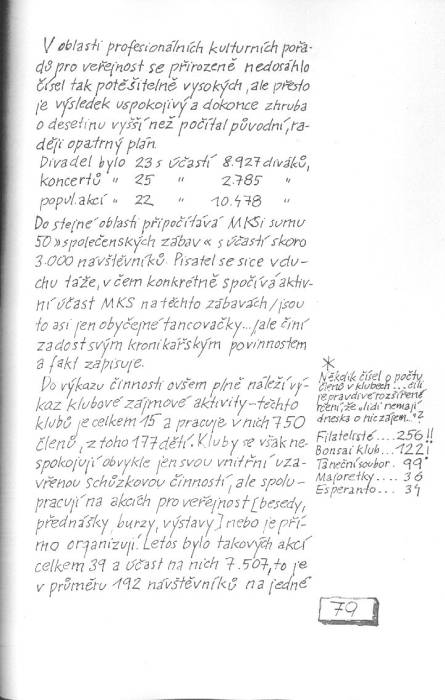 V oblasti profesionálních kulturních pořa-
dů pro veřejnost se přirozeně nedosáhlo
čísel tak potěšitelně vysokých, ale přesto
je výsledek uspokojivý a dokonce zhruba
o desetinu vyšší než počítal původní, ra-
ději opatrný plán.
Divadel bylo 23 s účastí 8.927 diváků,
koncertů " 25 " 2.785 "
popul. akcí " 22 " 10.478 "
Do stejné oblasti připočítává MKSi sumu
50 »společenských zábav« s účastí skoro
3.000 návštěvníků. Pisatel se sice v du-
chu táže, v čem konkrétně spočívá aktiv-
ní účast MKS na těchto zábavách /jsou
to asi jen obyčejné tancovačky.../ale činí
zadost svým kronikářským povinnostem
a fakt zapisuje.
Do výkazu činnosti ovšem plně náleží vý-
kaz klubové zájmové aktivity - těchto
klubů je celkem 15 a pracuje v nich 750
členů, z toho 177 dětí. Kluby se však ne-
spokojují obvykle jen svou vnitřní uza-
vřenou schůzkovou činností, ale spolu-
pracují na akcích pro veřejnost [besedy,
přednášky, burzy, výstavy] nebo je pří-
mo organizují. Letos bylo takových akcí
celkem 39 a účast na nich 7.507, to je
v průměru 192 návštěvníků na jedné
*
Několik čísel o počtu
členů v klubech... čili
je pravdivé rozšířené
řčení, že „lidi nemají
dneska o nic zájem..."?
Filatelisté.....256!!
Bonsai klub...122!
Taneční soubor. 99
Mažoretky.... 36
Esperanto... 34
79